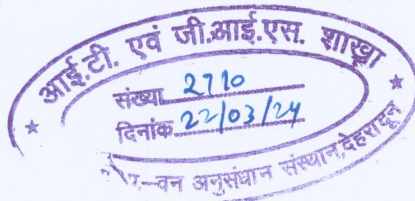 आई.टी. एवं जी.आई.एस. शाखा
संख्या 2710
दिनांक 22/03/24
वन अनुसंधान संस्थान, देहरादून